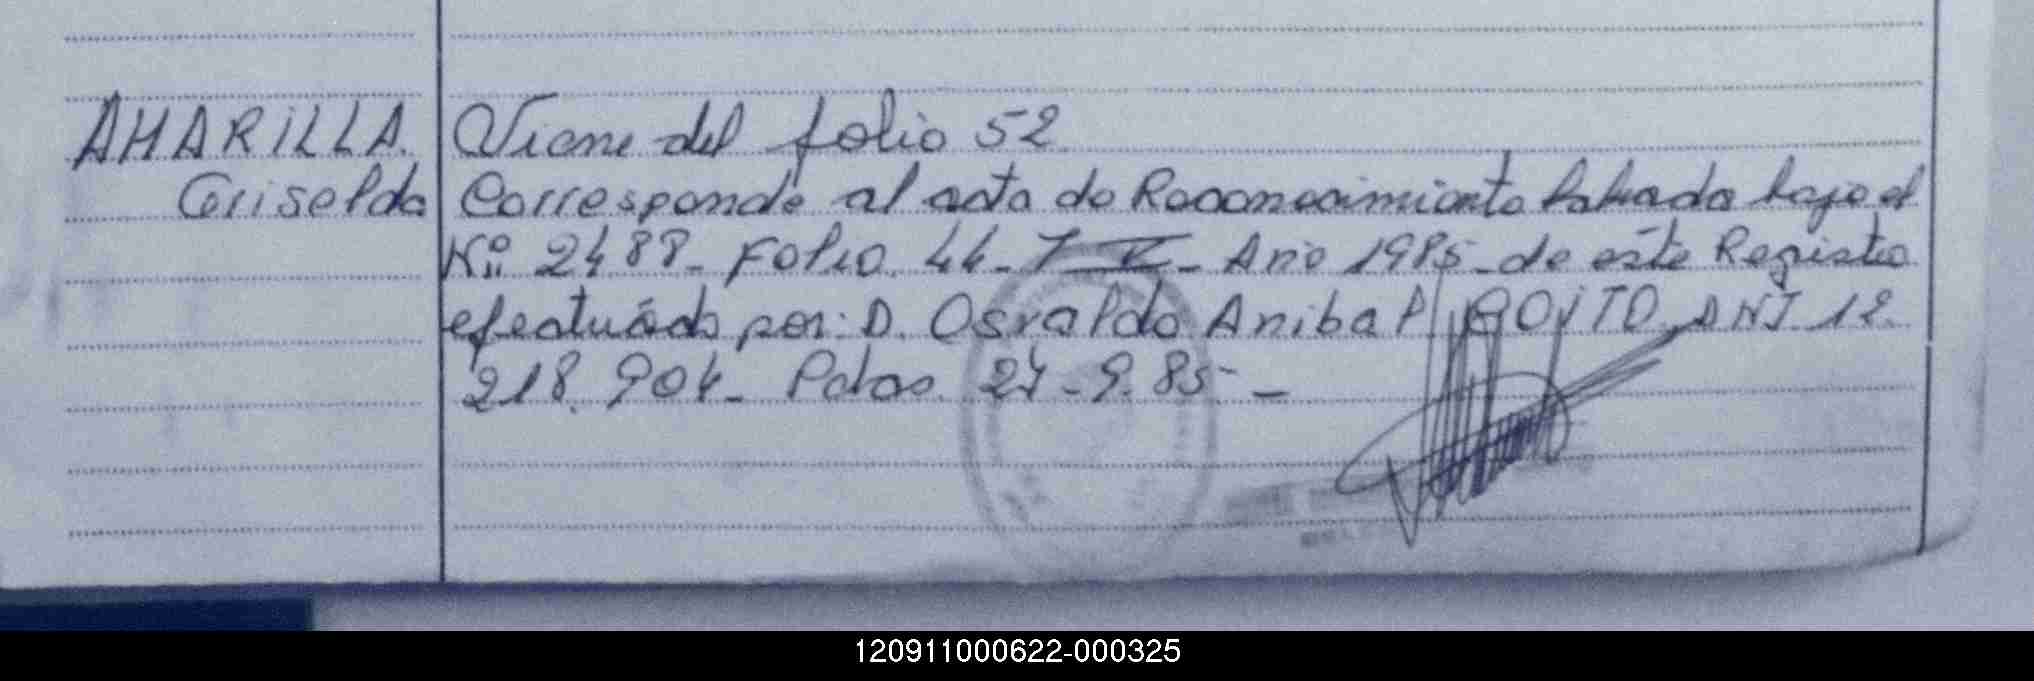 AMARILLA. Viene del folio 52
Griselda Corresponde al acta de Reconocimiento labrada bajo el
Nº 2488- Folio. 44- T V- Año 1985- de este Registro
efectuado por: D. Osvaldo Anibal GOITO DNI 12.
218.904- Pdas. 27-9.85-
120911000622-000325